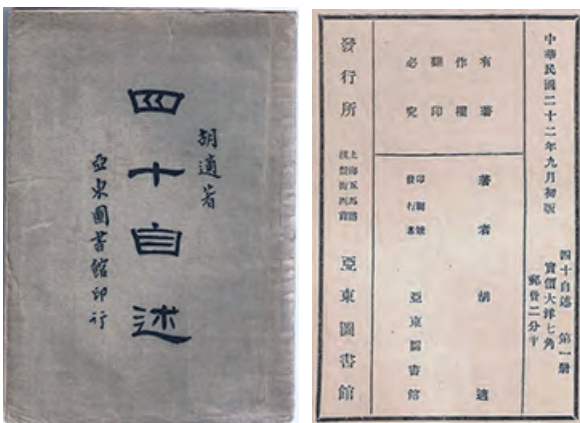 胡適著
四十自述
亞東圖書館印行
中華民國二十二年九月初版
四十自述 第一册
實價大洋七角
郵費二分半
有著
作權
翻印
必究
著者 胡適
印刷兼
發行者
亞東圖書館
發行所
上海五馬路
棋盤街西首
亞東圖書館